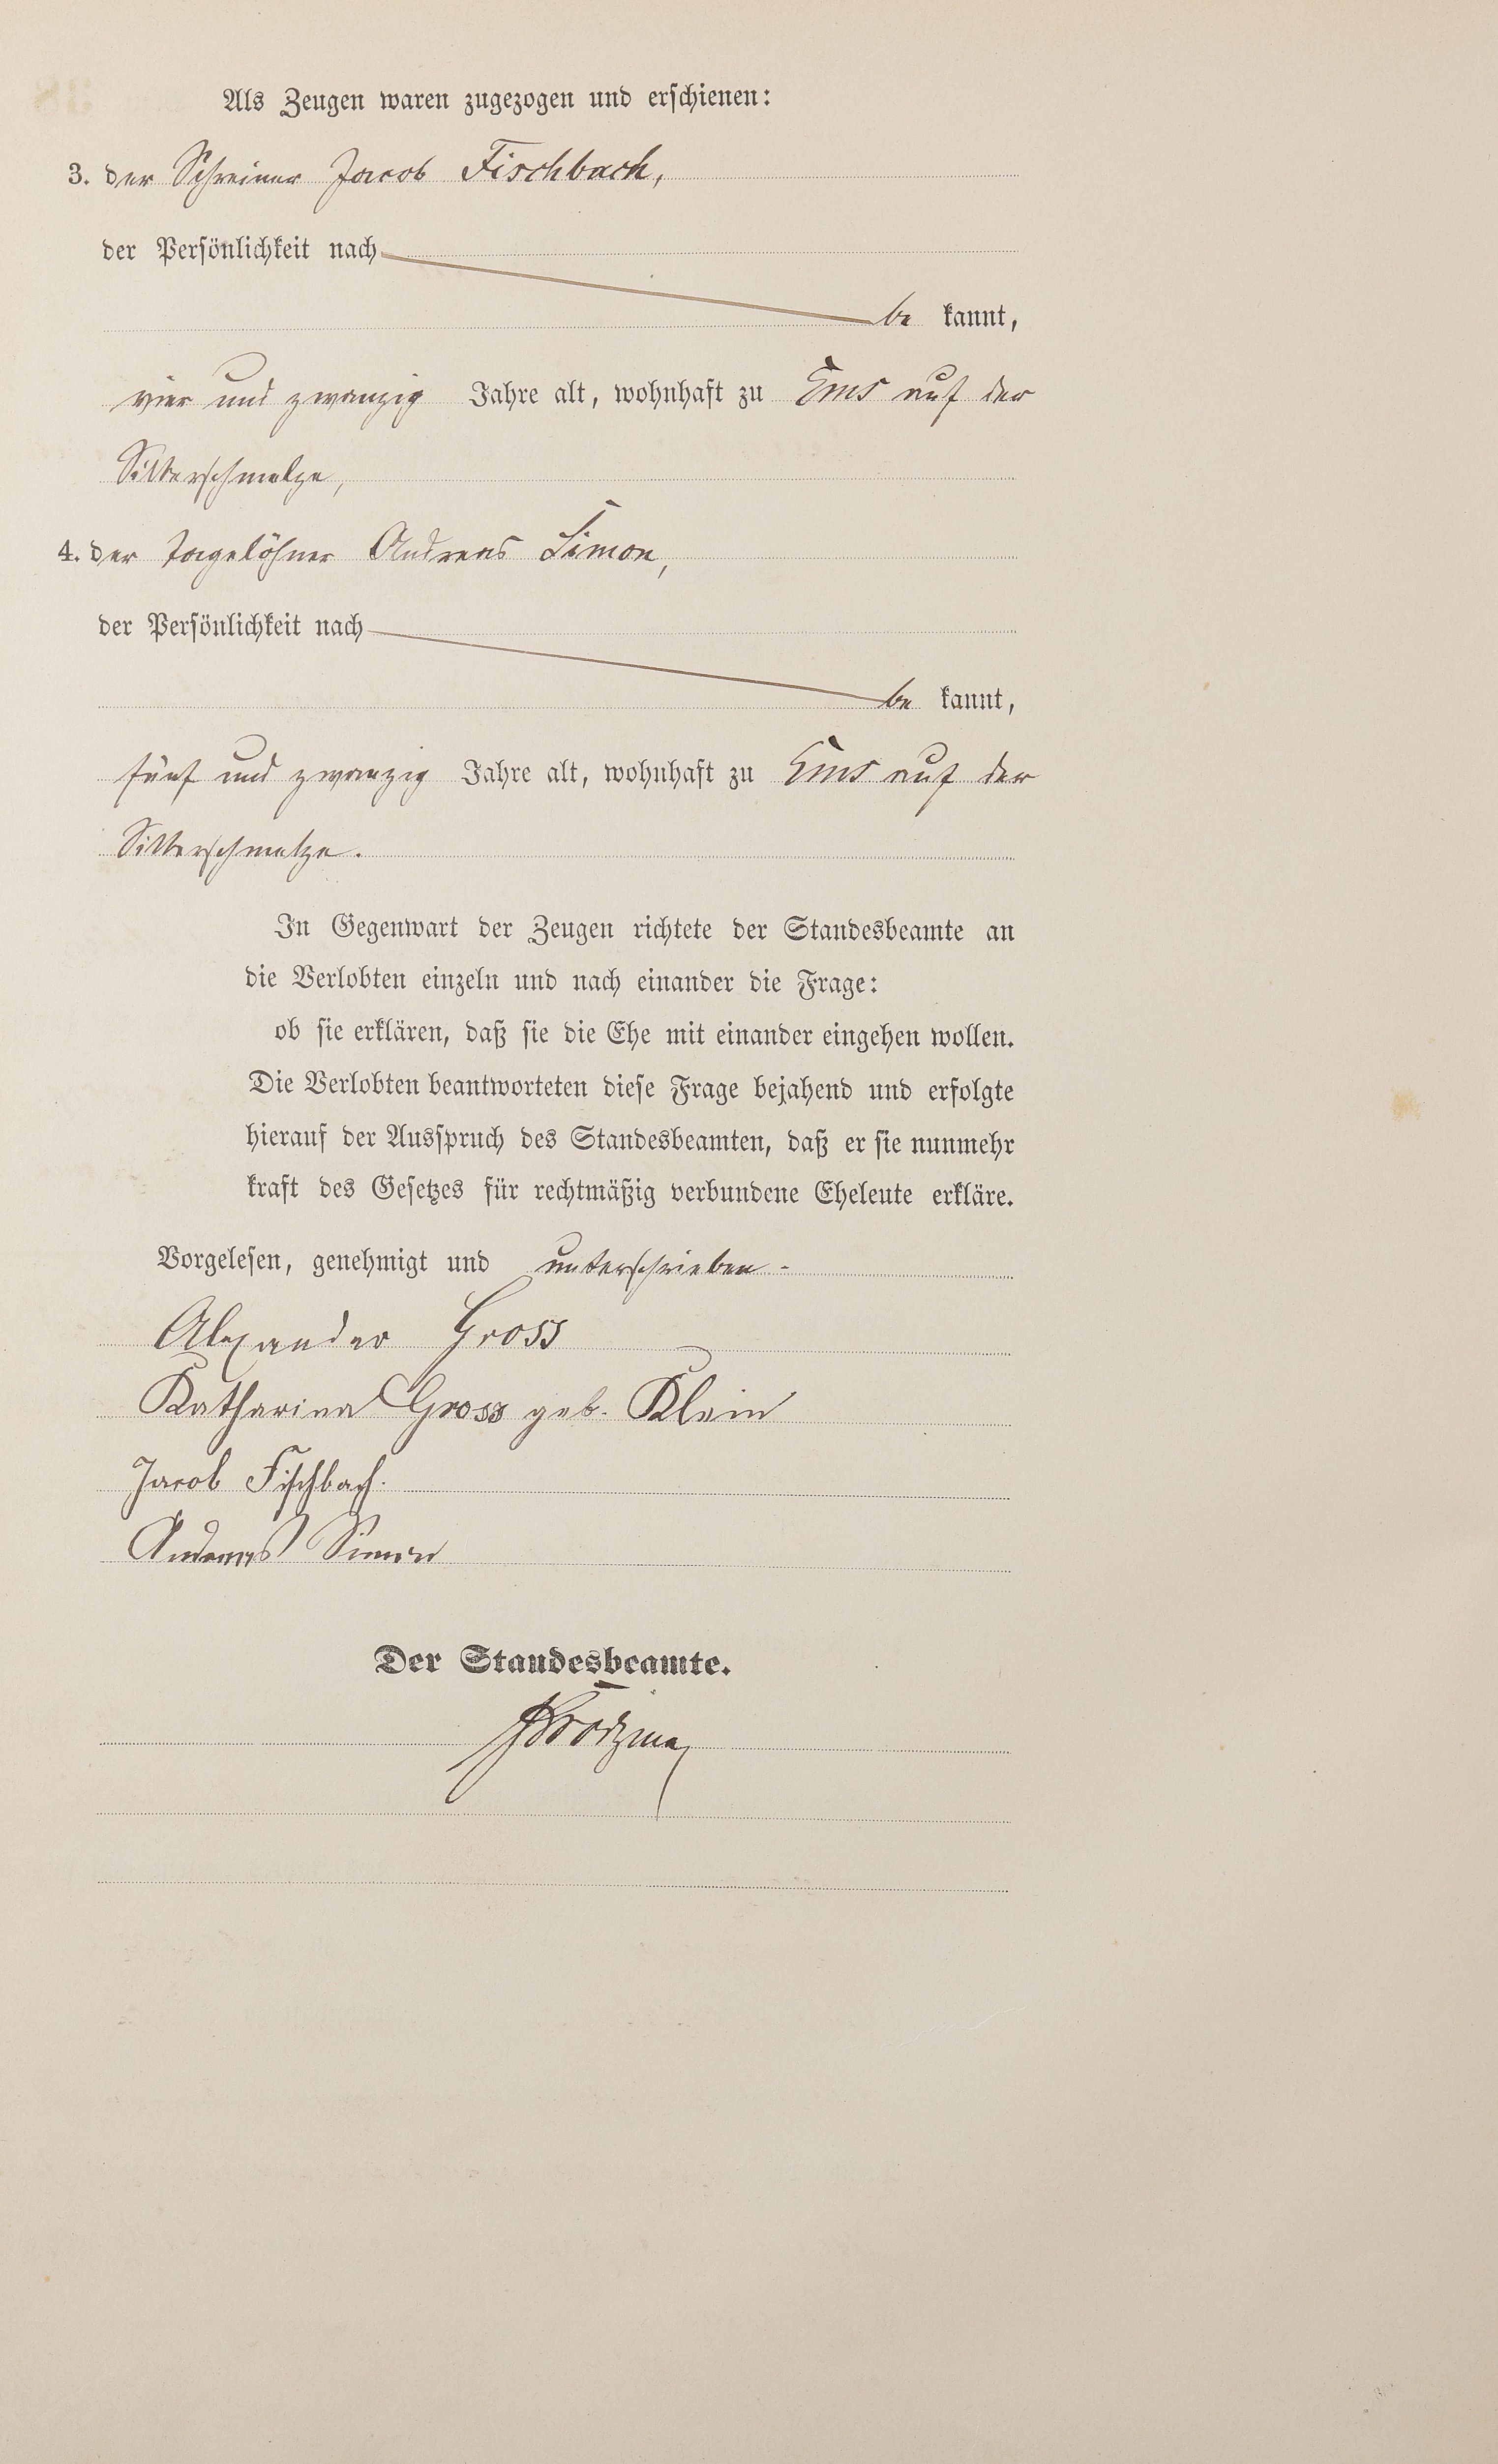 Als Zeugen waren zugezogen und erschienen:
3. der Schreiner Jacob Fischbach,
der Persönlichkeit nach
be kannt,
vier und zwanzig Jahre alt, wohnhaft zu Ems auf der
Silberschmelze,
4. der Tagelöhner Andreas Simon,
der Persönlichkeit nach
be kannt,
fünf und zwanzig Jahre alt, wohnhaft zu Ems auf der
Silberschmelze.
In Gegenwart der Zeugen richtete der Standesbeamte an
die Verlobten einzeln und nach einander die Frage:
ob sie erklären, daß sie die Ehe mit einander eingehen wollen.
Die Verlobten beantworteten diese Frage bejahend und erfolgte
hierauf der Ausspruch des Standesbeamten, daß er sie nunmehr
kraft des Gesetzes für rechtmäßig verbundene Eheleute erkläre.
Vorgelesen, genehmigt und unterschrieben -
Alexander Gross
Katharina Gross geb. Klein
Jacob Fischbach.
Andreas Simon
Der Standesbeamte.